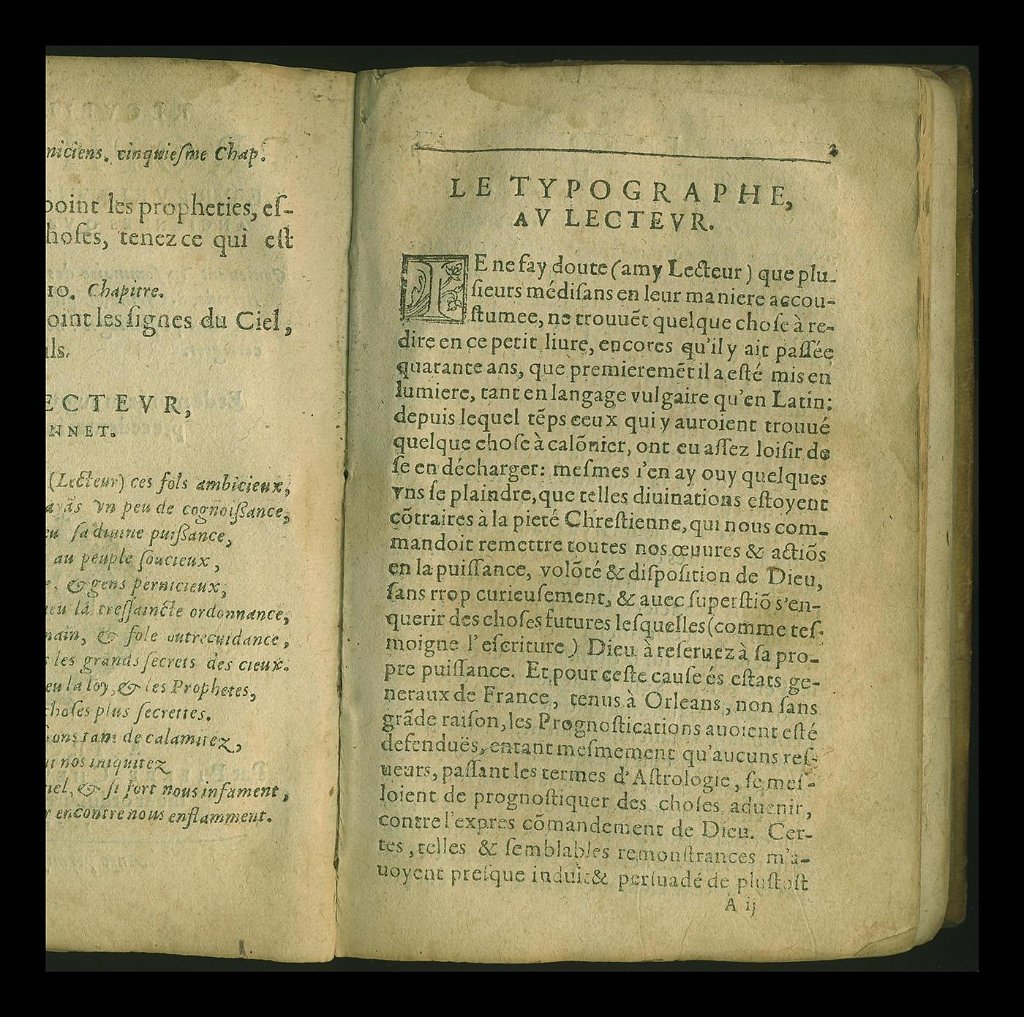 niciens. cinquieſme Chap.
point les propheties, eſ-
hoſes, tenez ce qui eſt
10. Chapitre.
oint les ſignes du Ciel,
ls.
ECTEVR,
NNET.
(Lecteur) ces fols ambicieux,
vn peu de cognoiſſance,
ſa diuine puiſſance,
au peuple ſoucieux,
, & gens pernicieux,
eu la treſſaincte ordonnance,
main, & fole outrecuidance,
les grands ſecrets des cieux.
eu la loy, & les Prophetes,
choſes plus ſecrettes.
tant de calamitez,
nos iniquitez
iel, & ſi fort nous infament,
r encontre nous enflamment.
2
LE TYPOGRAPHE,
AV LECTEVR.
IE ne fay doute (amy Lecteur) que plu-
ſieurs médiſans en leur maniere accou-
ſtumee, ne trouuẽt quelque choſe à re-
dire en ce petit liure, encores qu'il y ait paſſée
quarante ans, que premieremẽt il a eſté mis en
lumiere, tant en langage vulgaire qu'en Latin:
depuis lequel tẽps ceux qui y auroient trouué
quelque choſe à calõnier, ont eu aſſez loiſir de
ſe en décharger: meſmes i'en ay ouy quelques
vns ſe plaindre, que telles diuinations eſtoyent
cõtraires à la pieté Chreſtienne, qui nous com-
mandoit remettre toutes nos œuures & actiõs
en la puiſſance, volõté & diſpoſition de Dieu,
ſans rrop curieuſement, & auec ſuperſtiõ s'en-
querir des choſes futures leſquelles (comme teſ-
moigne l'eſcriture) Dieu à reſeruez à ſa pro-
pre puiſſance. Et pour ceſte cauſe és eſtats ge-
neraux de France, tenus à Orleans, non ſans
grãde raiſon, les Prognoſtications auoient eſté
defenduës, entant meſmement qu'aucuns reſ-
ueurs, paſſant les termes d'Aſtrologie, ſe meſ-
loient de prognoſtiquer des choſes aduenir,
contre l'expres cõmandement de Dieu. Cer-
tes, telles & ſemblables remonſtrances m'a-
uoyent preſque induit & perſuadé de pluſtoſt
A ij